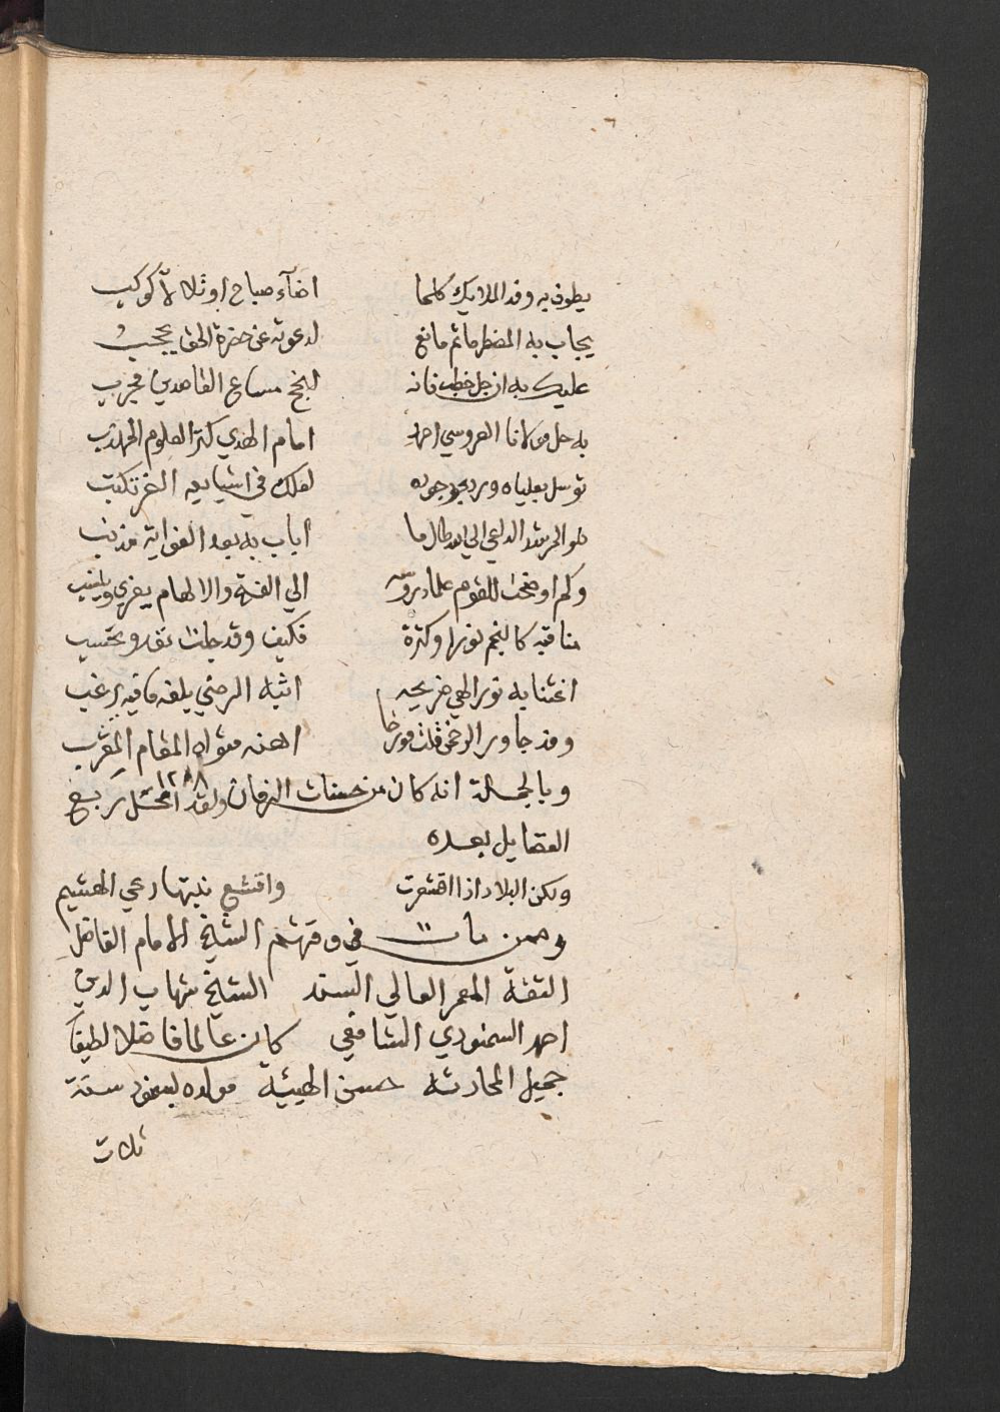 يطوف به وفد الملايك كلما اضآء صباح او تلالأ كوكب
يجاب به المضطر ما ثم مانع لدعوته عن حضرة الحق يحجب
عليك به ان جل خطب فانه لنجح مساع القاصدين مجرب
به حل مولانا العروسي احمد امام الهدي كنز العلوم المهذب
توسل بعلياه ورد بحر جوده لعلك في اشياعه الغر تكتب
هو المرشد الداعي الي الله طال ما اناب به بعد الغواية مذنب
وكم اوضحت للقوم علما دروسه الي الفقه والالهام يعزي وينسب
مناقبه كالنجم نورا وكثرة فكيف وقد جلت تعد وتحسب
اغثنا به نورا لهي ضريحه اثبه الرضي يلقه ما فيه يرغب
ومذ جاور الرحمن قلت مورخا لاهنه مثواه المقام المقرب
١٢٠٨
وبالجملة انه كان من حسنات الزمان ولقد امحل ربع
الفضايل بعده
ولكن البلاد اذا اقشعرت واقشع نبتها رعي الهشيم
وممن مات في وقتهم الشيخ الامام الفاضل
الثقة المعمر العالي السند الشيخ شهاب الدين
احمد السمنودي الشافعي كان عالما فاضلا لطيفا
جميل المحادثه حسن الهيئة مولده بسمنود سنة
ثلاث